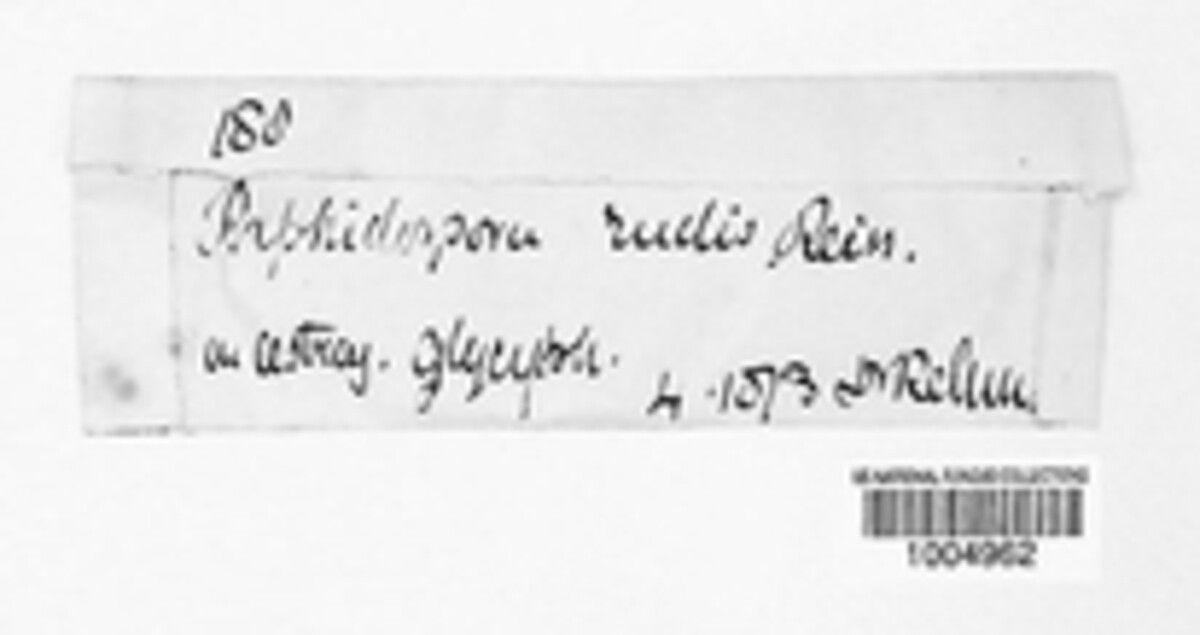 180
Raphidospora rudis Rein.
an astrag. glycyph.
4. 1873 Dr Rehm.
US NATIONAL FUNGUS COLLECTIONS
1004962